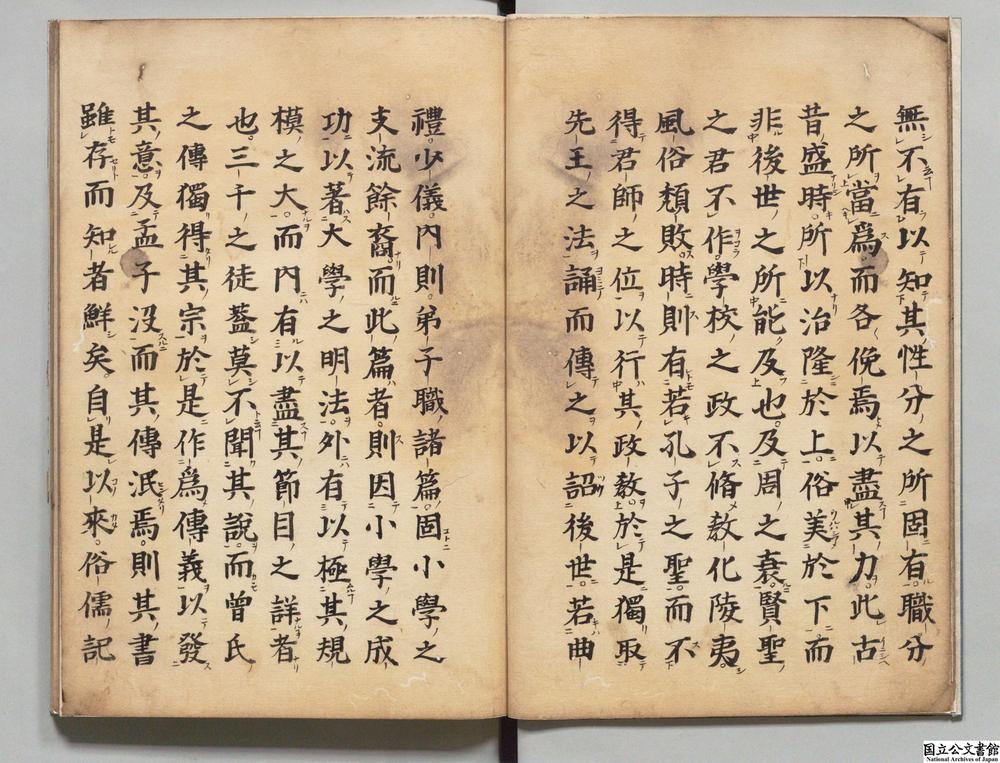 無不有以知其性分之所固有職分
之所當爲而各俛焉以盡其力此古
昔盛時所以治隆於上俗美於下而
非後世之所能及也及周之衰賢聖
之君不作學校之政不脩敎化陵夷
風俗頽敗時則有若孔子之聖而不
得君師之位以行其政敎於是獨取
先王之法誦而傳之以詔後世若曲
禮少儀內則弟子職諸篇固小學之
支流餘裔而此篇者則因小學之成
功以著大學之明法外有以極其規
模之大而內有以盡其節目之詳者
也三千之徒蓋莫不聞其說而曾氏
之傳獨得其宗於是作爲傳義以發
其意及孟子沒而其傳泯焉則其書
雖存而知者鮮矣自是以來俗儒記
国立公文書館
National Archives of Japan